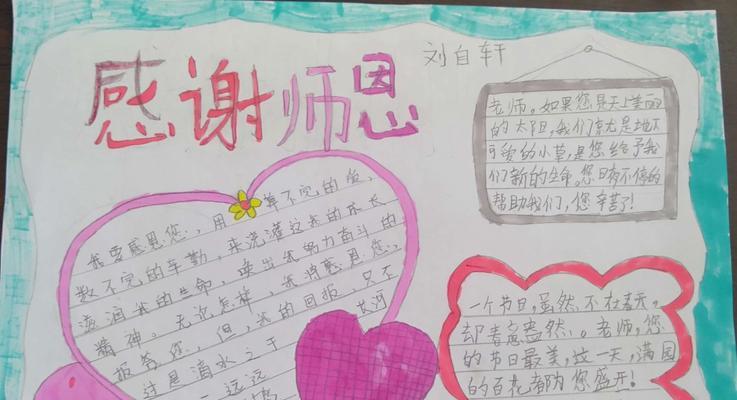 感谢师恩
刘自轩
老师。如果您是天上美丽
的太阳,我们就是地下
可爱的小草,是您给予我
们新的生命。您日夜不停的
帮助我们,您辛苦了!
我要感恩您.,用 算不完的爱,
数不完的辛勤,来浇灌这我的成长
滋润我的生命,唤出我努力奋斗的
精神。无论怎样,我将感恩您,
报答您,但,我的回报,只不
过是滴水之于 长河
远远
一个节日,虽然不在春天。
却春意盎然.。老师,您
的节日最美,这一天,满园
的百花都为您盛开!